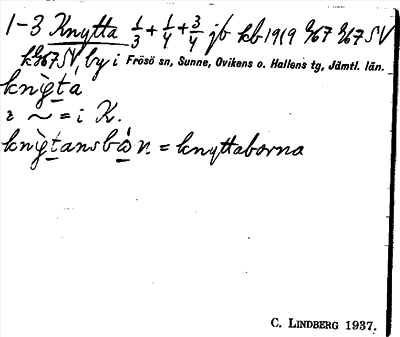 1-3 Knytta 1/3 + 1/4 + 3/4 jb kb 1919 h67 h67 SV
k h67 SV, by i Frösö sn, Sunne, Ovikens o. Hallens tg, Jämtl. län.
knỳta
i ~ = i K.
knỳtansbòn = knyttaborna
C. LINDBERG 1937.